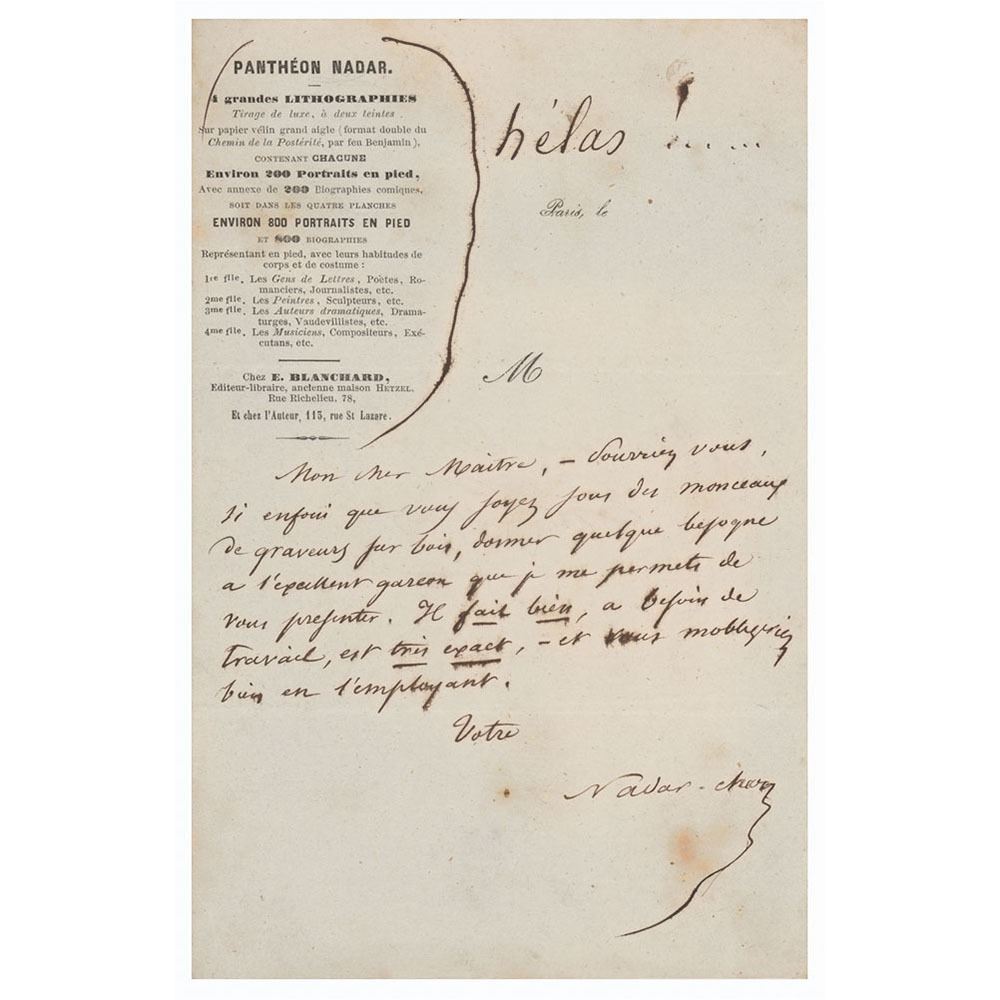 PANTHÉON NADAR.
4 grandes LITHOGRAPHIES
Tirage de luxe, à deux teintes.
Sur papier vélin grand aigle (format double du
Chemin de la Postérité, par feu Benjamin),
CONTENANT CHACUNE
Environ 200 Portraits en pied,
Avec annexe de 200 Biographies comiques,
SOIT DANS LES QUATRE PLANCHES
ENVIRON 800 PORTRAITS EN PIED
ET 800 BIOGRAPHIES
Représentant en pied, avec leurs habitudes de
corps et de costume :
1re flle. Les Gens de Lettres, Poëtes, Ro-
manciers, Journalistes, etc.
2me flle. Les Peintres, Sculpteurs, etc.
3me flle. Les Auteurs dramatiques, Drama-
turges, Vaudevillistes, etc.
4me flle. Les Musiciens, Compositeurs, Exé-
cutans, etc.
Chez E. BLANCHARD,
Editeur-libraire, ancienne maison HETZEL,
Rue Richelieu, 78,
Et chez l'Auteur, 113, rue St Lazare.
hélas !.....
Paris, le
M
Mon cher Maître, – Pourriez vous,
si enfoui que vous soyez sous des monceaux
de graveurs sur bois, donner quelque besogne
a l'excellent garcon que je me permets de
vous presenter. Il fait bien, a besoin de
travail, est très exact, – et vous mobligeriez
bien en l'employant.
Votre
Nadar